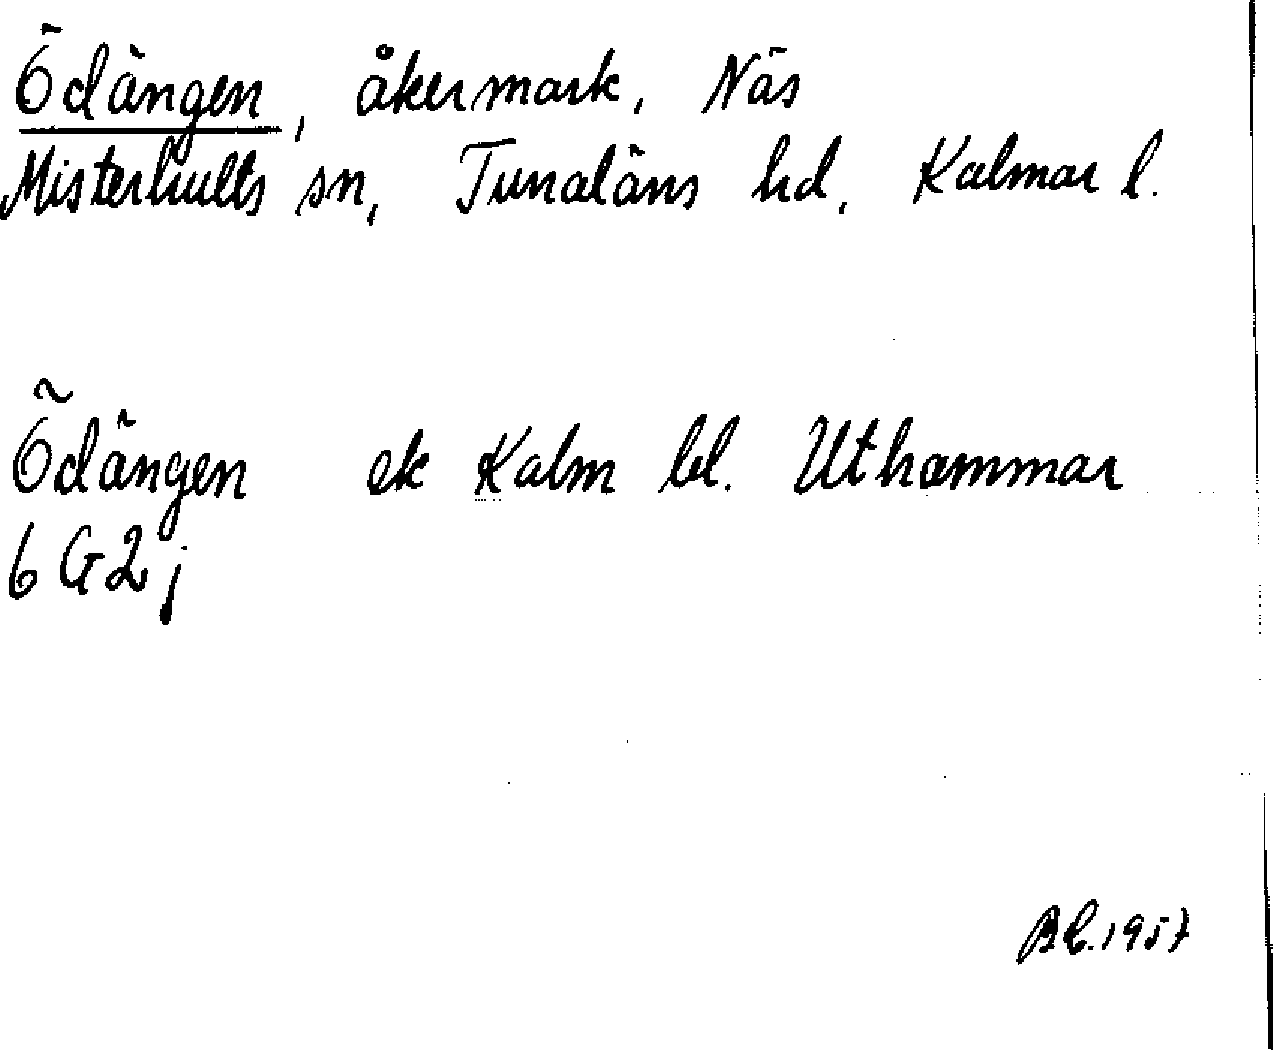 Ödängen, åkermark, Näs
Misterhults sn, Tunaläns hd, Kalmar l.
Ödängen ek Kalm bl. Uthammar
6 G 2 j
1957